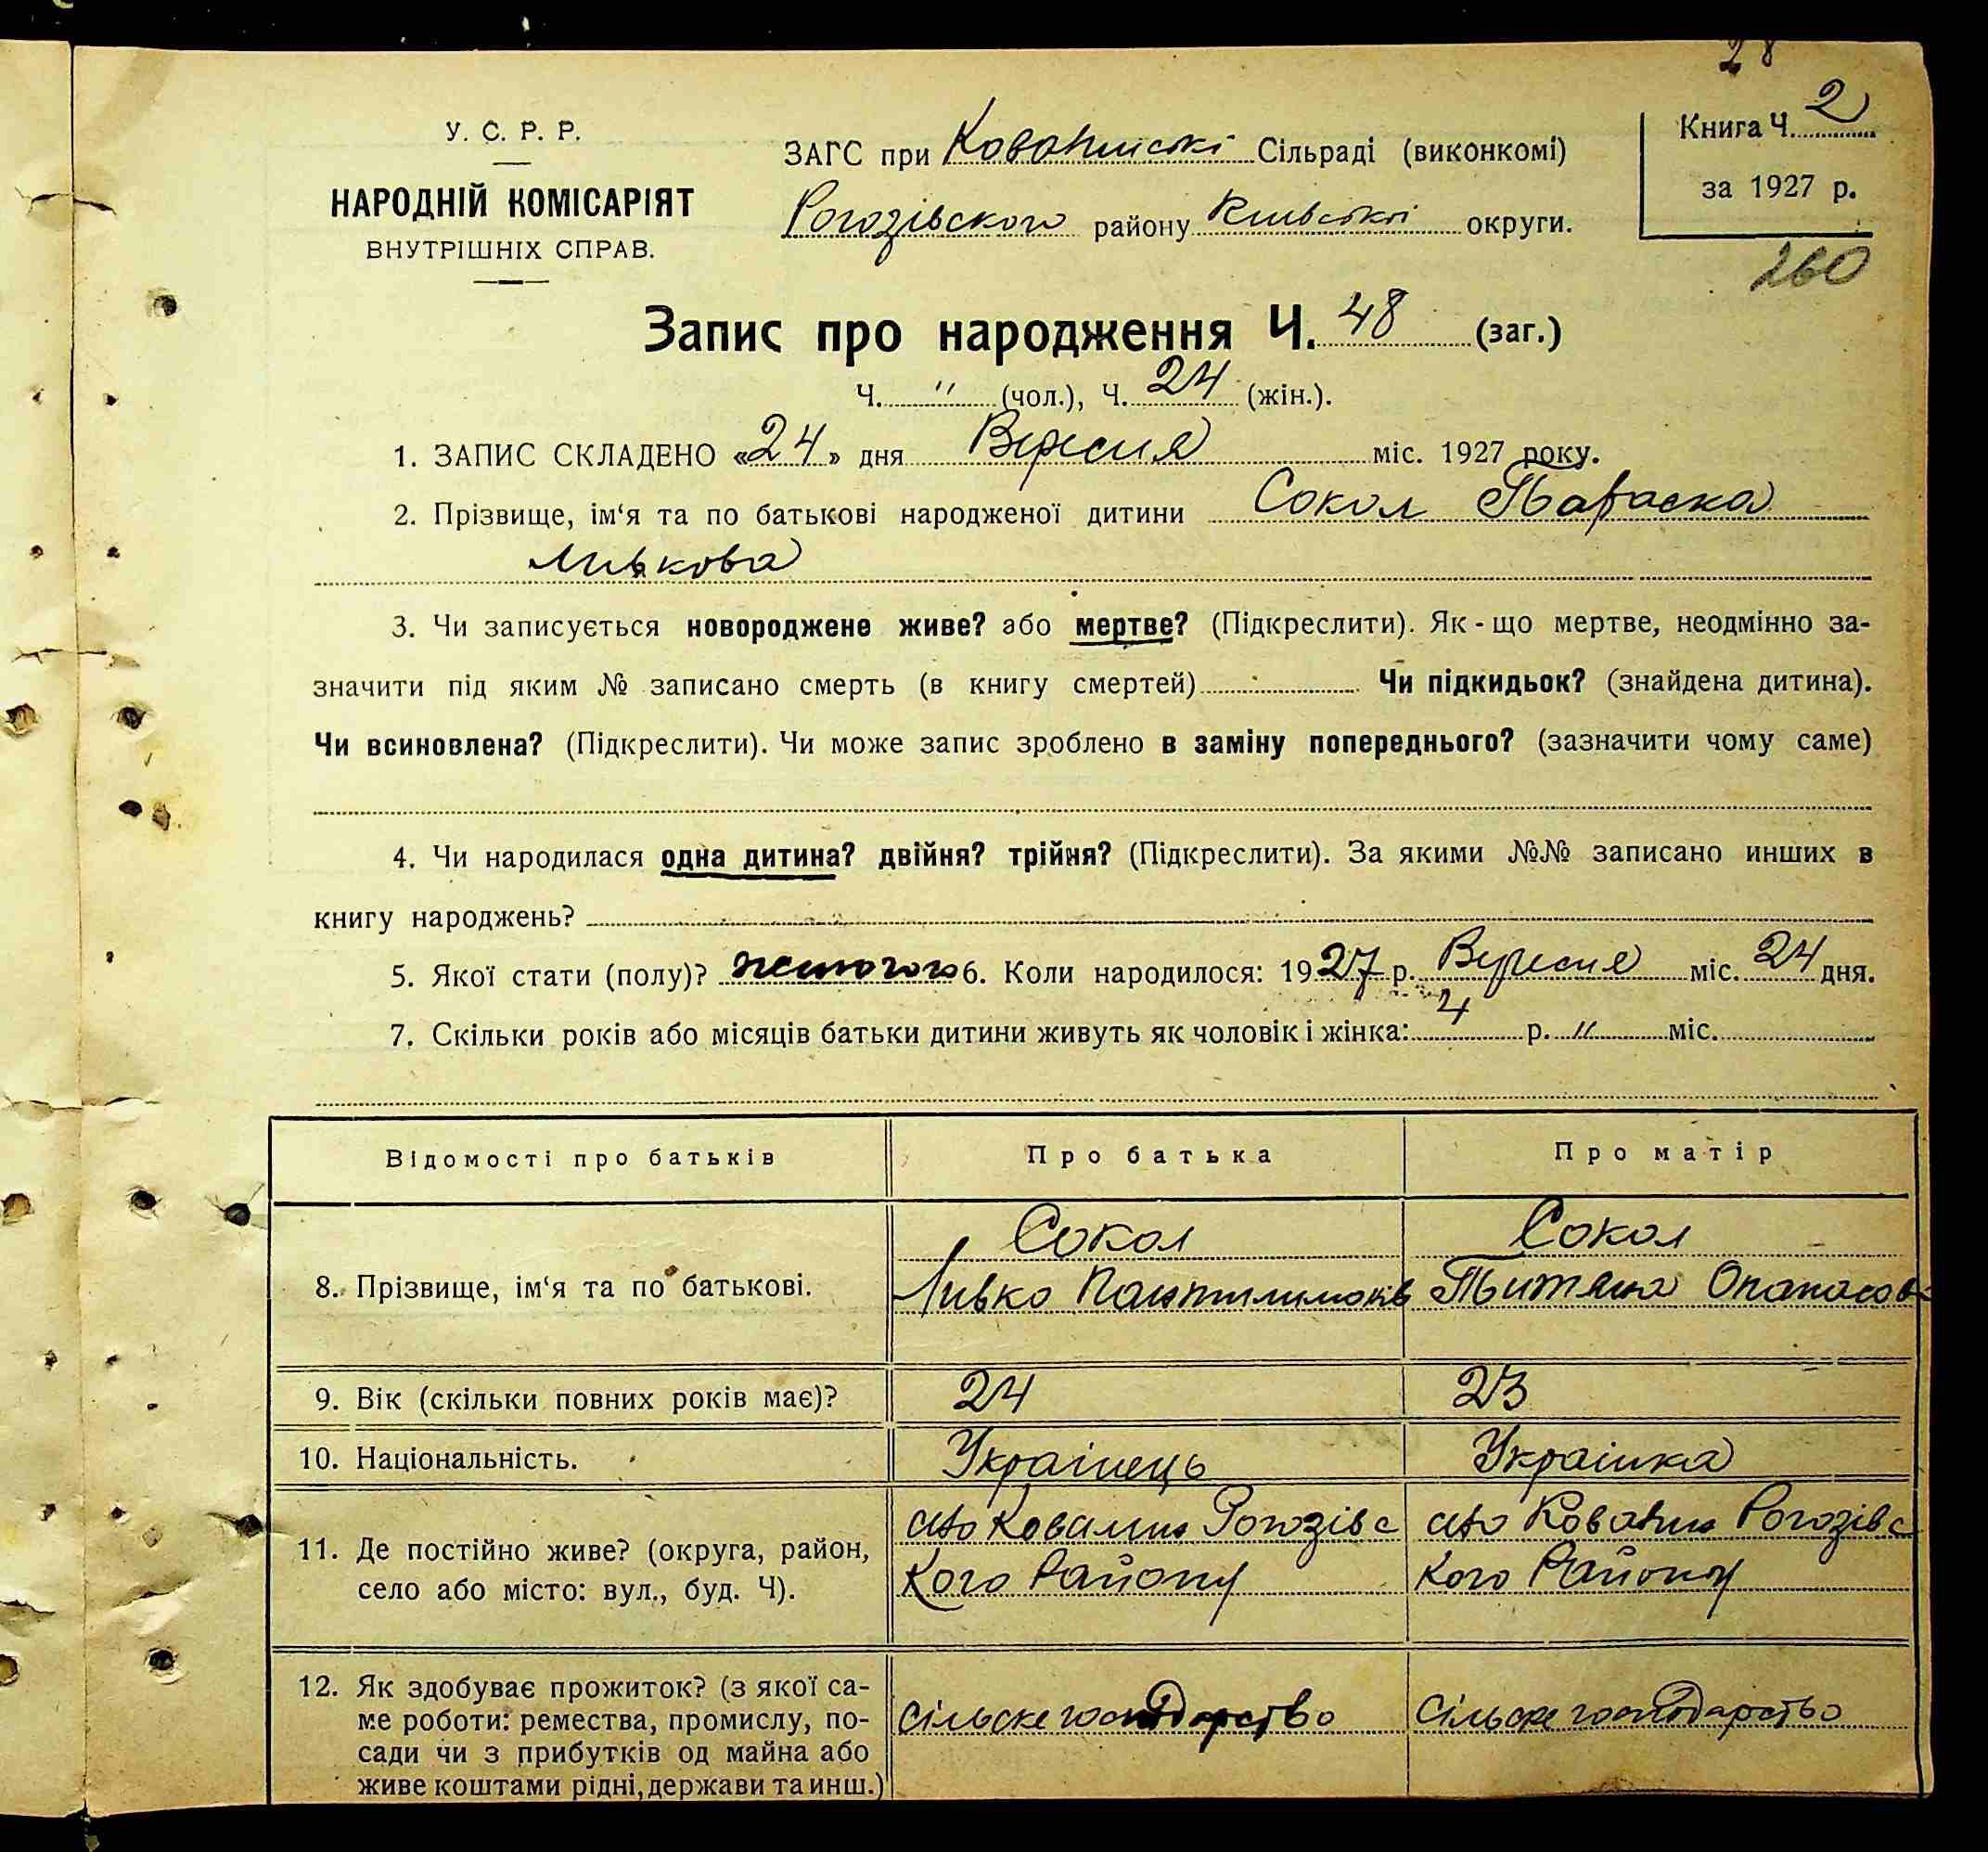 28
У. С. Р. Р.
НАРОДНІЙ КОМІСАРІЯТ
ВНУТРІШНІХ СПРАВ.
ЗАГС при Кованській Сільраді (виконкомі)
Рогозівского району Київської округи.
Книга Ч. 2
за 1927 р.
260
Запис про народження Ч. 48 (заг.)
Ч. " (чол.), Ч. 24 (жін.).
1. ЗАПИС СКЛАДЕНО «24» дня Вересня міс. 1927 року.
2. Прізвище, ім‘я та по батькові народженої дитини Сокол Параска
Ливкова
3. Чи записується новороджене живе? або мертве? (Підкреслити). Як-що мертве, неодмінно за-
значити під яким № записано смерть (в книгу смертей) Чи підкидьок? (знайдена дитина).
Чи всиновлена? (Підкреслити). Чи може запис зроблено в заміну попереднього? (зазначити чому саме)
4. Чи народилася одна дитина? двійня? трійня? (Підкреслити). За якими №№ записано инших в
книгу народжень?
5. Якої стати (полу)? жіночого 6. Коли народилося: 1927 р. Вересня міс. 24 дня.
7. Скільки років або місяців батьки дитини живуть як чоловік і жінка: 4 р. " міс.
Відомості про батьків Про батька Про матір
8. Прізвище, ім‘я та по батькові.
Сокол Сокол
Ливко Пантилимонів Титяна Опанасов
9. Вік (скільки повних років має)? 24 23
10. Національність. Українець Українка
11. Де постійно живе? (округа, район,
село або місто: вул., буд. Ч).
село Ковалин Рогозівс село Ковалин Рогозівс
кого Району кого Району
12. Як здобуває прожиток? (з якої са-
ме роботи: ремества, промислу, по-
сади чи з прибутків од майна або
живе коштами рідні, держави та инш.)
сільске господарство сільске господарство